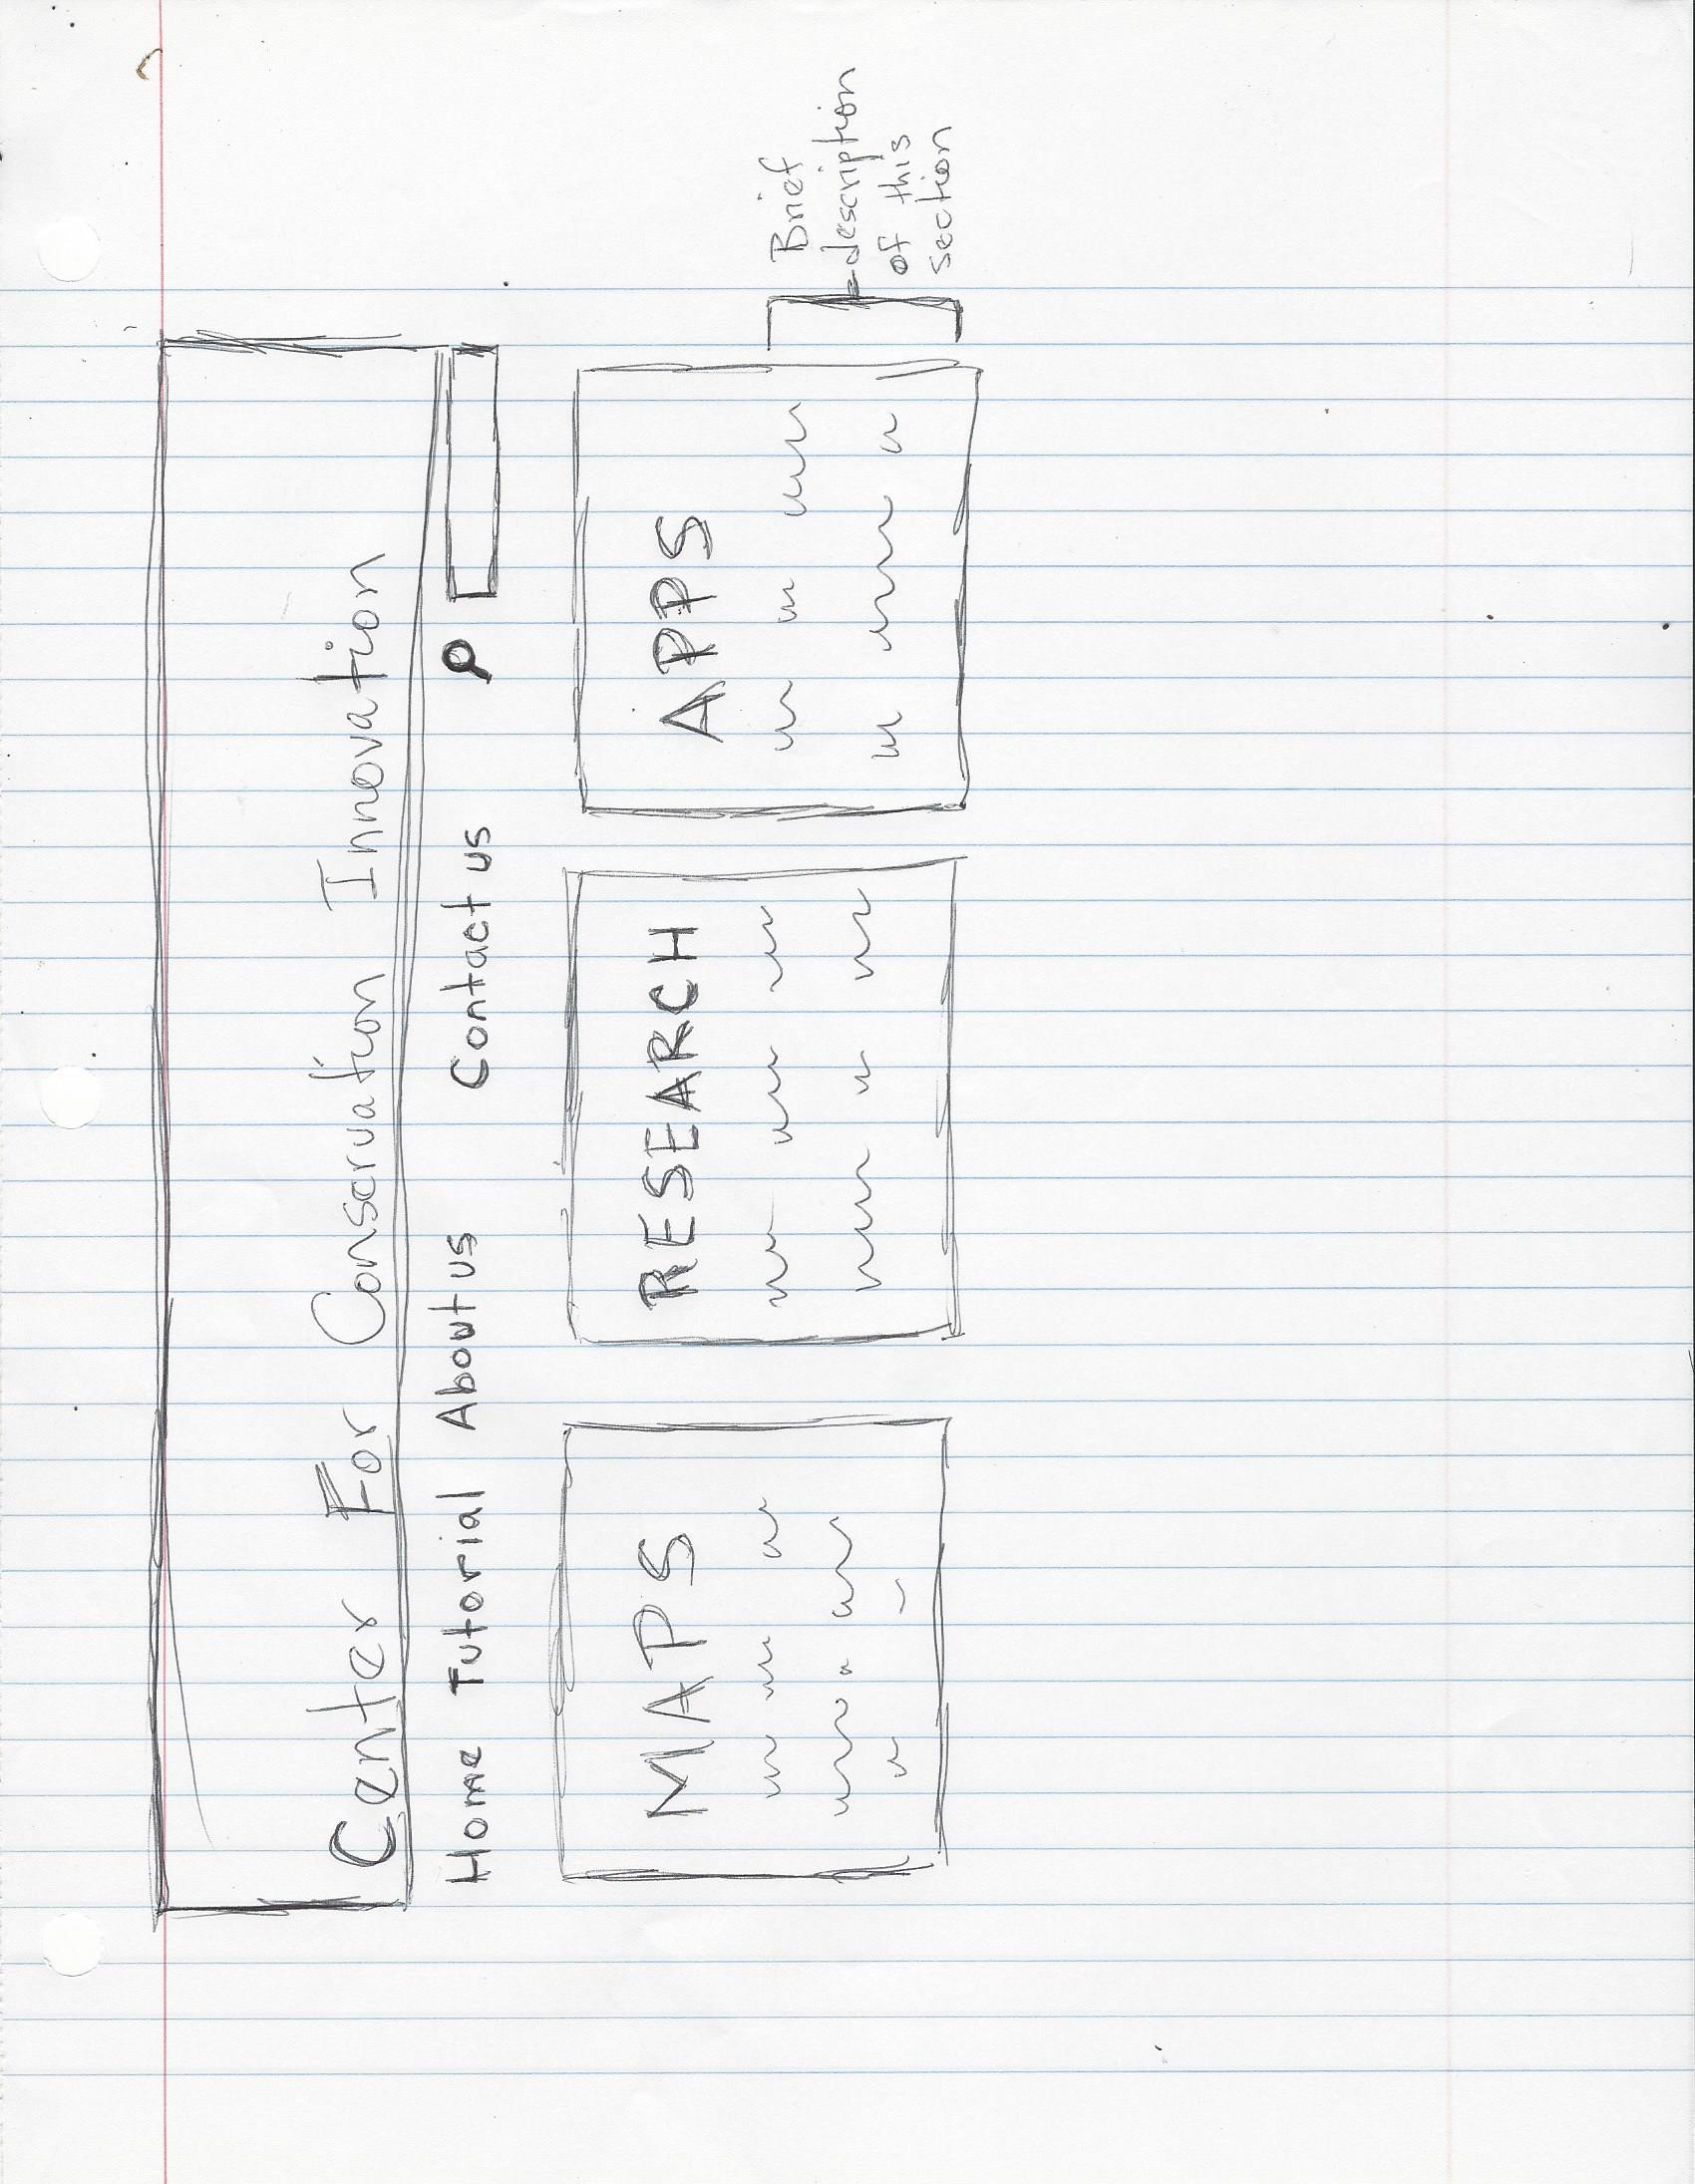 Center For Conservation Innovation
Home Tutorial About us Contact us
MAPS RESEARCH APPS
Brief
description
of this
section